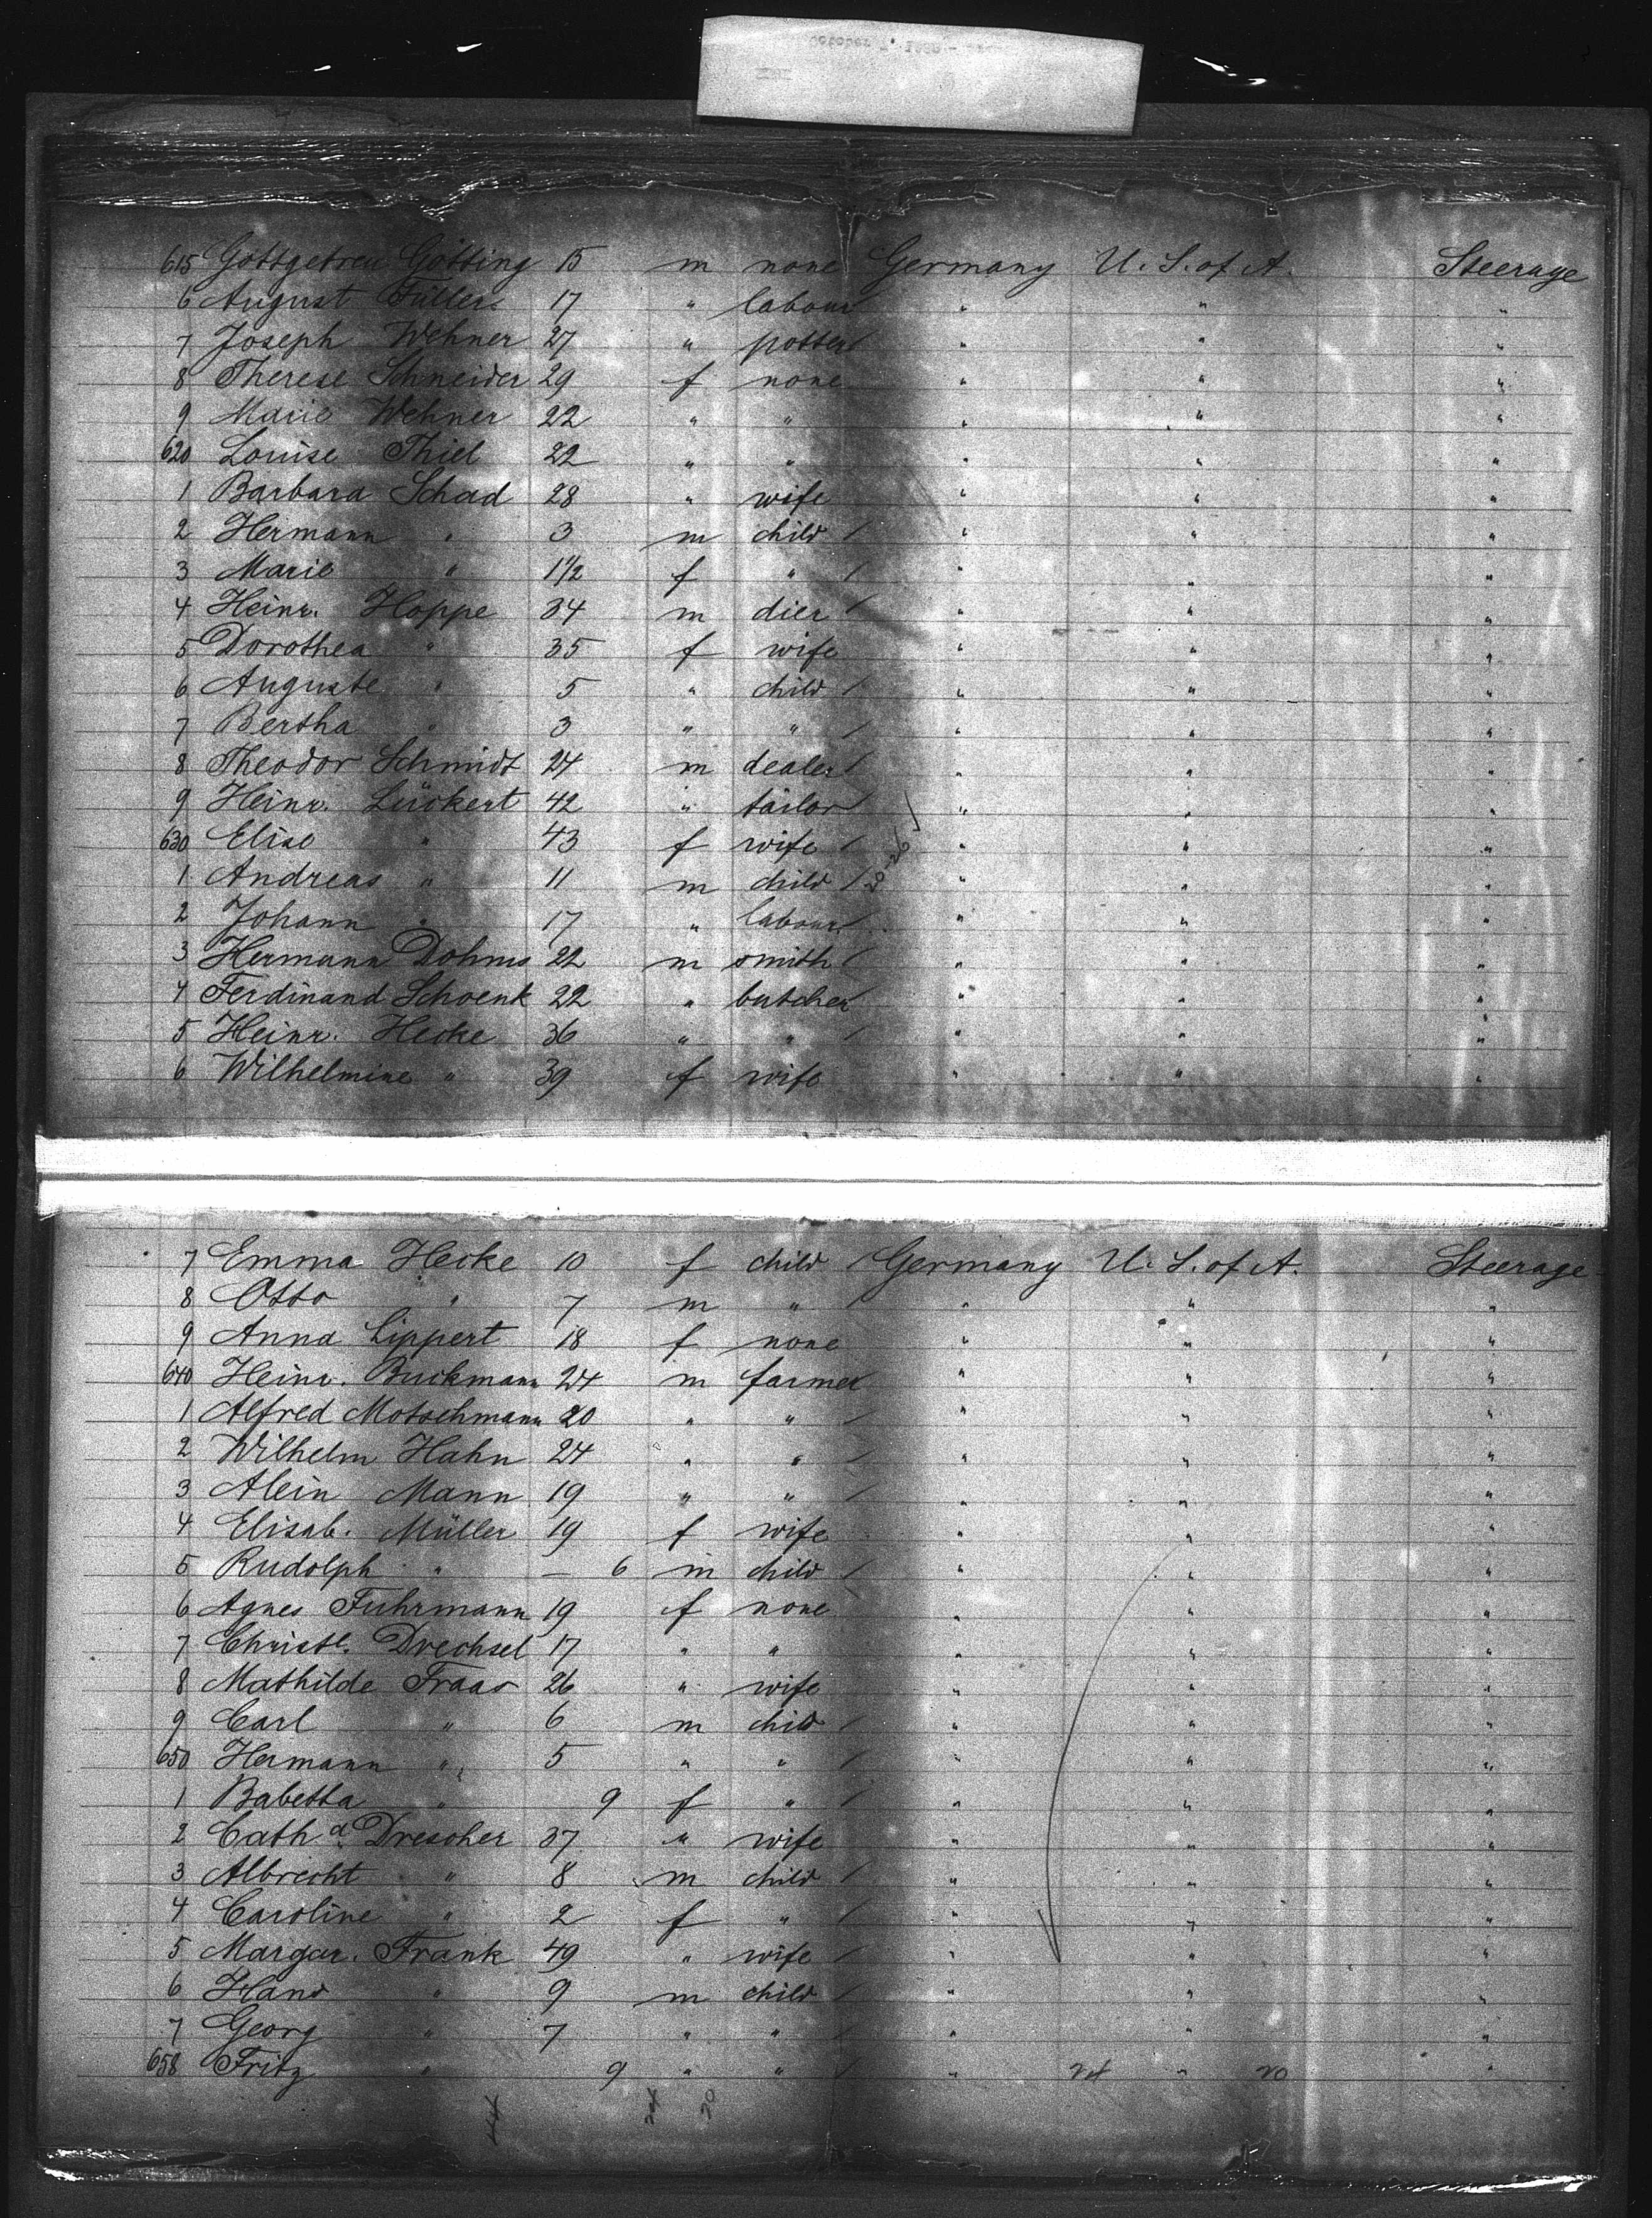 615 Gottgetreu Götting 15 m none Germany U. S. of A. Steerage
6 August Füllers 17 " labour " " "
7 Joseph Wehner 27 " potter " " "
8 Therese Schneider 29 f none " " "
9 Marie Wehner 22 " " " " "
620 Louise Thiel 22 " " " " "
1 Barbara Schad 28 " wife " " "
2 Hermann " 3 m child " " "
3 Marie " 1 1/2 f " " " "
4 Heinr. Hoppe 34 m dier " " "
5 Dorothea " 35 f wife " " "
6 Auguste " 5 " child " " "
7 Bertha " 3 " " " " "
8 Theodor Schmidt 24 m dealer " " "
9 Heinr. Lückert 42 " tailor " " "
630 Elise " 43 f wife " " "
1 Andreas " 11 m child " " "
2 Johann " 17 " labour " " "
3 Hermann Dohms 22 m smith " " "
4 Ferdinand Schoenk 22 " butcher " " "
5 Heinr. Hecke 36 " " " " "
6 Wilhelmine " 39 f wife " " "
7 Emma Hecke 10 f child Germany U. S. of A. Steerage
8 Otto " 7 m " " " "
9 Anna Lippert 18 f none " " "
640 Heinr. Buckmann 24 m farmer " " "
1 Alfred Motschmann 20 " " " " "
2 Wilhelm Hahn 24 " " " " "
3 Alein Mann 19 " " " " "
4 Elisab. Müller 19 f wife " " "
5 Rudolph " — 6 m child " " "
6 Agnes Fuhrmann 19 f none " " "
7 Christe. Drechsel 17 " " " " "
8 Mathilde Fraas 26 " wife " " "
9 Carl " 6 m child " " "
650 Hermann " 5 " " " " "
1 Babetta " 9 f " " " "
2 Catha. Drescher 37 " wife " " "
3 Albrecht " 8 m child " " "
4 Caroline " 2 f " " " "
5 Margar. Frank 49 " wife " " "
6 Hans " 9 m child " " "
7 Georg " 7 " " " " "
658 Fritz " 9 " " " 24 " 20 "
44 24 20